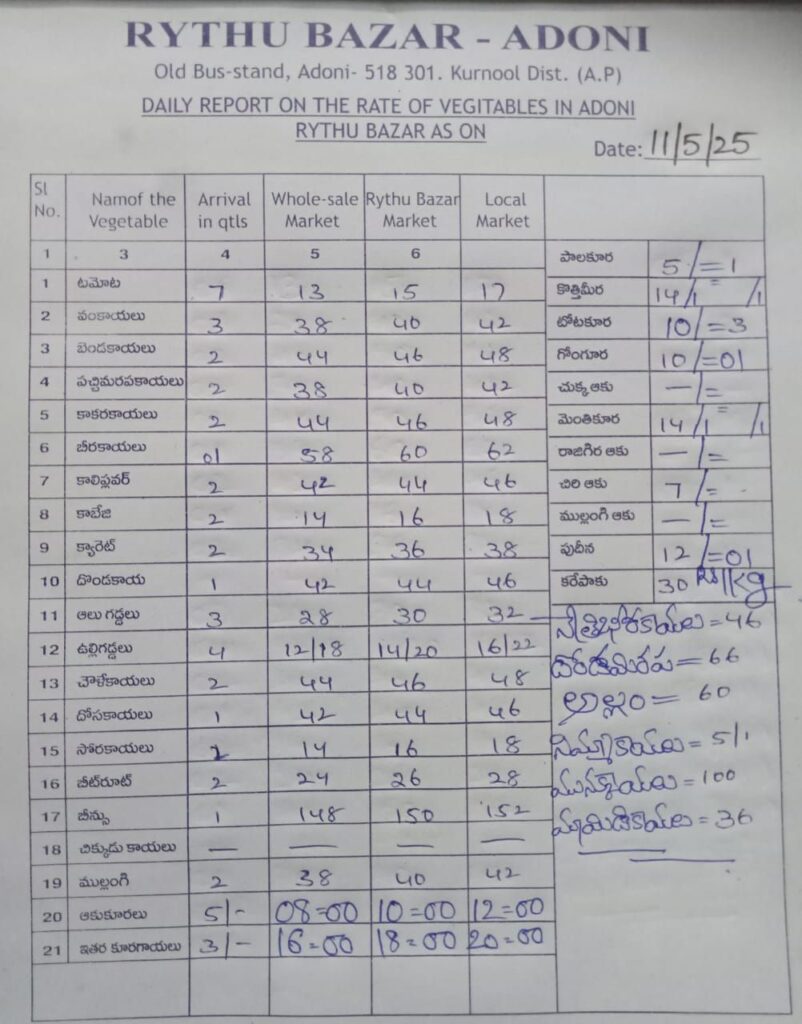 RYTHU BAZAR - ADONI
Old Bus-stand, Adoni- 518 301. Kurnool Dist. (A.P)
DAILY REPORT ON THE RATE OF VEGITABLES IN ADONI
RYTHU BAZAR AS ON
Date: 11/5/25
Sl No. Namof the Vegetable Arrival in qtls Whole-sale Market Rythu Bazar Market Local Market
1 3 4 5 6
1 టమోట 7 13 15 17
2 వంకాయలు 3 38 40 42
3 బెండకాయలు 2 44 46 48
4 పచ్చిమరపకాయలు 2 38 40 42
5 కాకరకాయలు 2 44 46 48
6 బీరకాయలు 01 58 60 62
7 కాలిఫ్లవర్ 2 42 44 46
8 కాబేజి 2 14 16 18
9 క్యారెట్ 2 34 36 38
10 దొండకాయ 1 42 44 46
11 ఆలు గడ్డలు 3 28 30 32
12 ఉల్లిగడ్డలు 4 12/18 14/20 16/22
13 చౌళేకాయలు 2 44 46 48
14 దోసకాయలు 1 42 44 46
15 సోరకాయలు 2 14 16 18
16 బీట్‌రూట్ 2 24 26 28
17 బీన్సు 1 148 150 152
18 చిక్కుడు కాయలు — — — —
19 ముల్లంగి 2 38 40 42
20 ఆకుకూరలు 5/- 08=00 10=00 12=00
21 ఇతర కూరగాయలు 3/- 16=00 18=00 20=00
పాలకూర 5/=1
కొత్తిమీర 14/1 = /1
టోటకూర 10/=3
గోంగూర 10/=01
చుక్క ఆకు —/=
మెంతికూర 14/1 = /1
రాజిగిర ఆకు —/=
చిరి ఆకు 7/=
ముల్లంగి ఆకు —/=
పుదీన 12/=01
కరేపాకు 30 Rs/kg
=46
=66
అల్లం = 60
నిమ్మకాయలు = 5/1
మునక్కాయలు = 100
మామిడికాయలు = 36